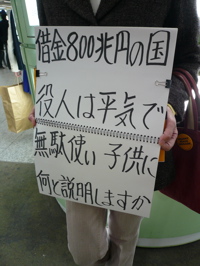 借金800兆円の国
役人は平気で
無駄使い子供に
何と説明しますか